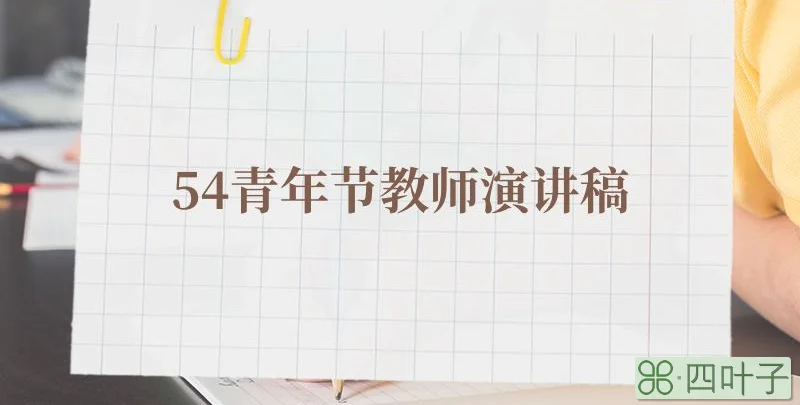 54青年节教师演讲稿
四叶子